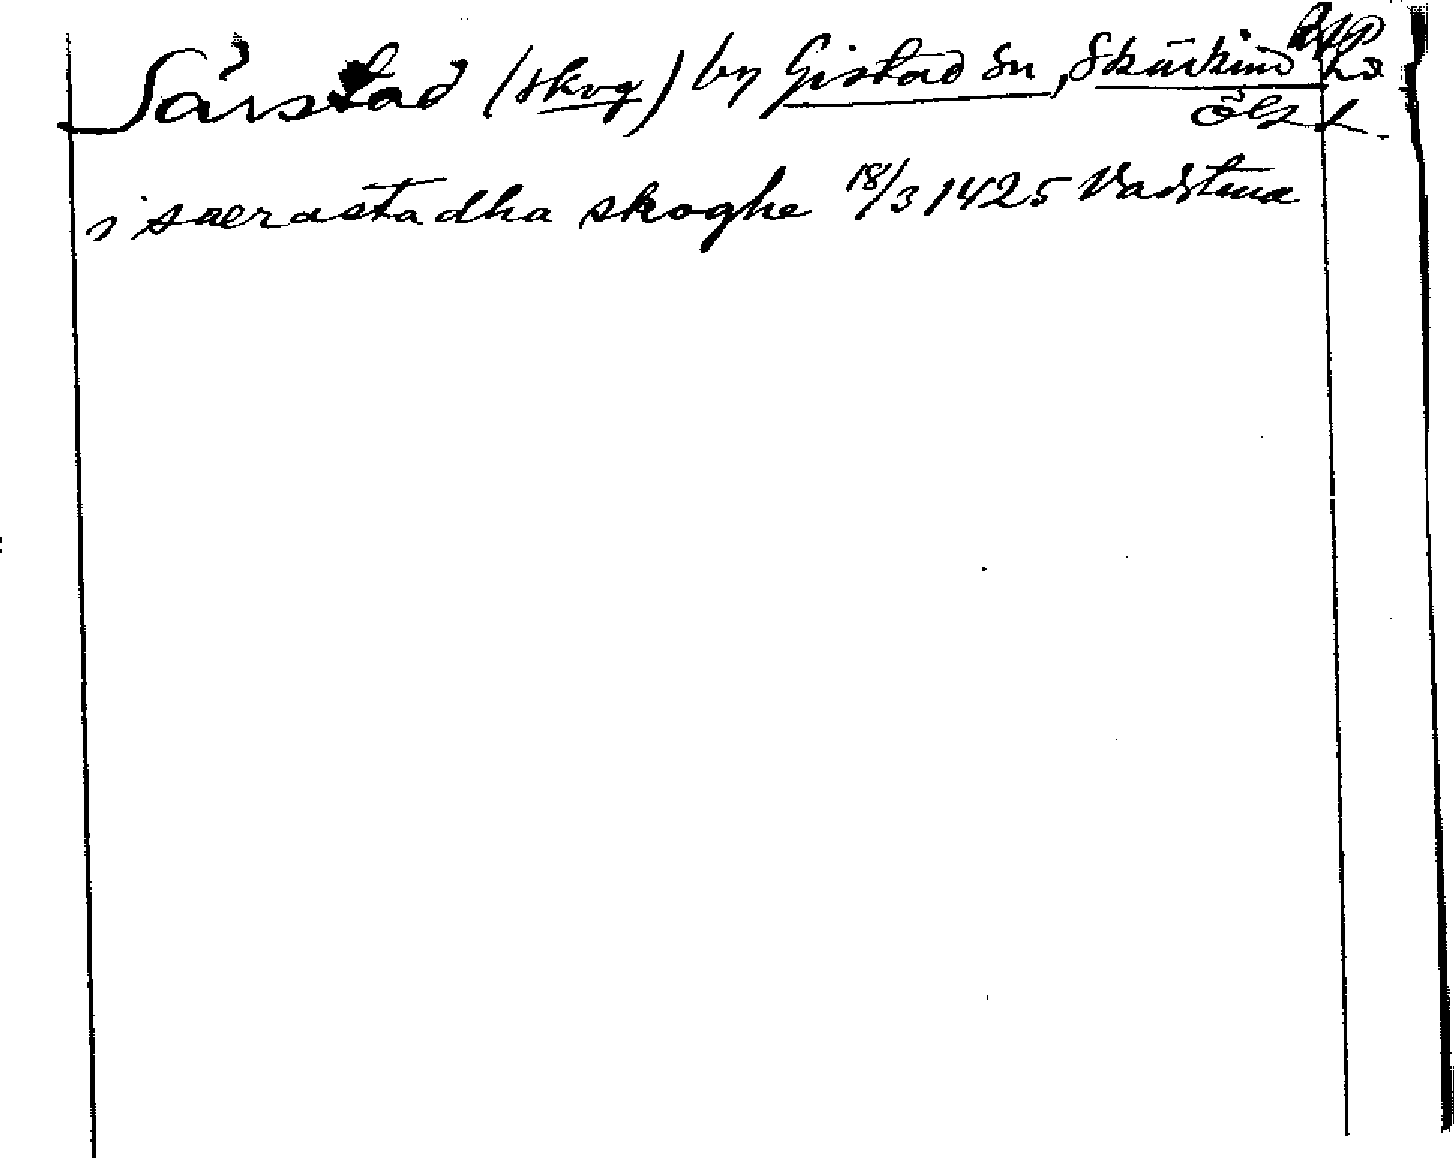 Särstad (skog) by Gistad sn, Skärkind
Ögl
i særastadha skoghe 18/3 1425 Vadstena